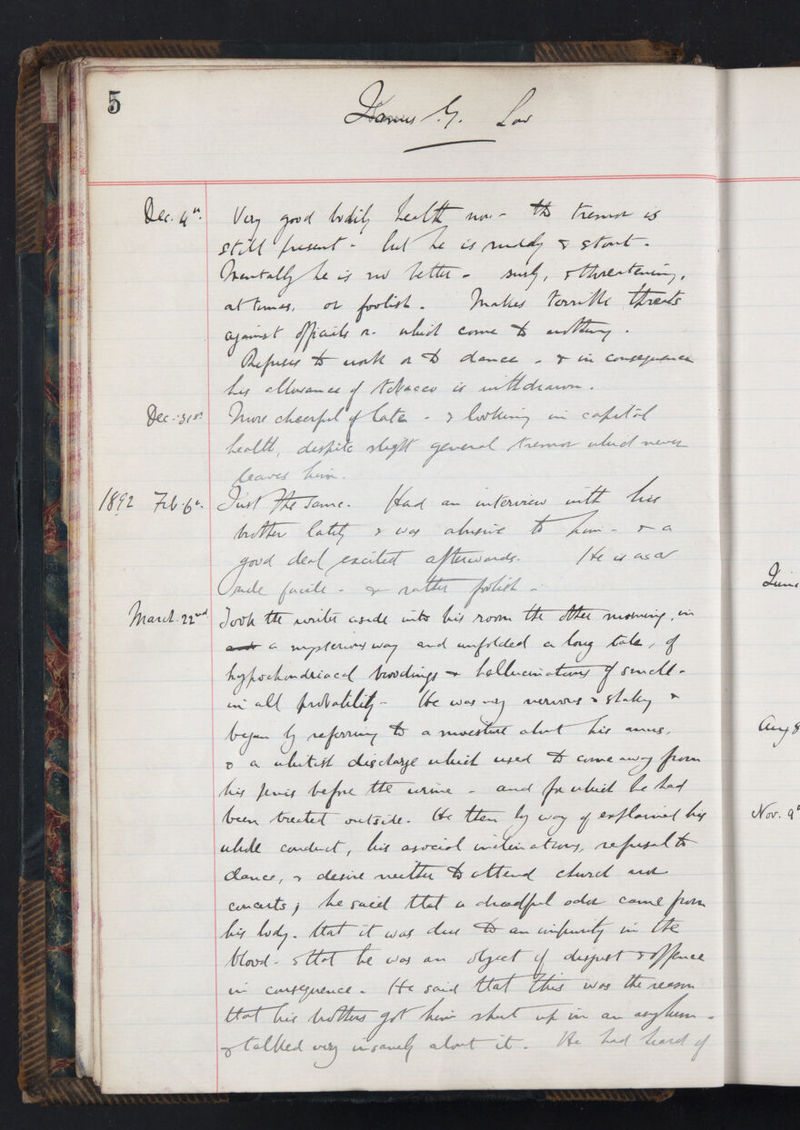 5
James G. Law
Dec. 4th. Very good bodily health now - the tremor is
still present - but he is ruddy & stout -
Mentally he is no better - surly, & threatening,
at times, or foolish - Makes terrible threats
against officials &c. which come to nothing.
Refuses to work or to dance - & in consequence
his allowance of tobacco is withdrawn.
Dec. 31st. More cheerful of late - & looking in capital
health, despite slight general tremor which never
leaves him.
1892 Feb. 6th. Just the same. Had an interview with his
brother lately & was abusive to him - & a
good deal excited afterwards. He is as a
rule facile - & rather foolish -
March 22nd Took the writer aside into his room the other morning, in
and a mysterious way and unfolded a long tale, of
hypochondriacal broodings & hallucinations of smell -
in all probability - He was very nervous & shaky &
began by referring to a moisture about his anus,
& a whitish discharge which used to come away from
his penis before the urine - and for which he had
been treated outside. He then by way of explained his
whole conduct, his asocial inclinations, refusal to
dance, & desire neither to attend church nor
concerts; he said that a dreadful odor came from
his body - that it was due to an impurity in the
blood - & that he was an object of disgust & offence
in consequence - He said that this was the reason
that his brothers got him shut up in an asylum -
& talked very insanely about it - He had heard of
June
Aug 8
Nov. 9th